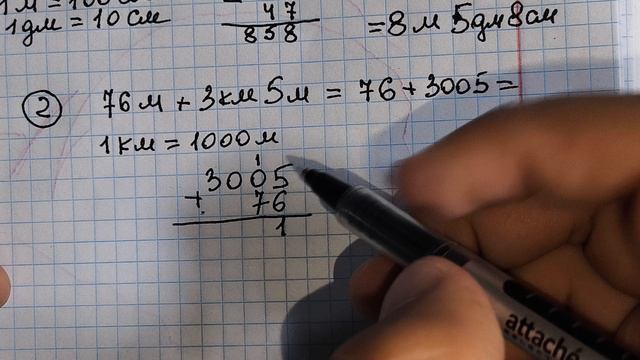 1м = 100 см
1дм = 10 см
47
858
= 8 м 5 дм 8 см
2 76 м + 3 км 5 м = 76 + 3005 =
1 км = 1000 м
1
3005
+ 76
1
attaché